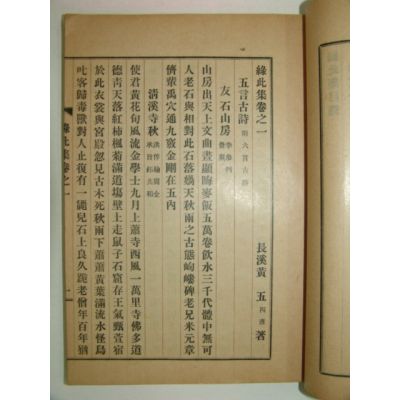 綠此集卷之一
長溪黃 五 著
五言古詩 附六言古詩
友石山房 李參判
山房出天上文曲晝顯晦麥飯五萬卷飮水三千代體中無可
人老石與相對此石落天秋雨之古態峋嶁碑老兄米元章
儕輩禹穴通九竅金剛在五內
淸溪寺秋
使君黃花旬風流金學士九月上蕭寺西風一萬里寺佛多道
德靑天落紅柿楓菊滿道場壁上走鼠子石窟存王氣甄萱宿
於此衣裳與宮殿忽見古木死秋雨下蕭蕭黃葉滿流水怪鳥
吐客歸毒獸對人止復有一兒石上良久跪老僧年百年猶
綠此集卷之一
一